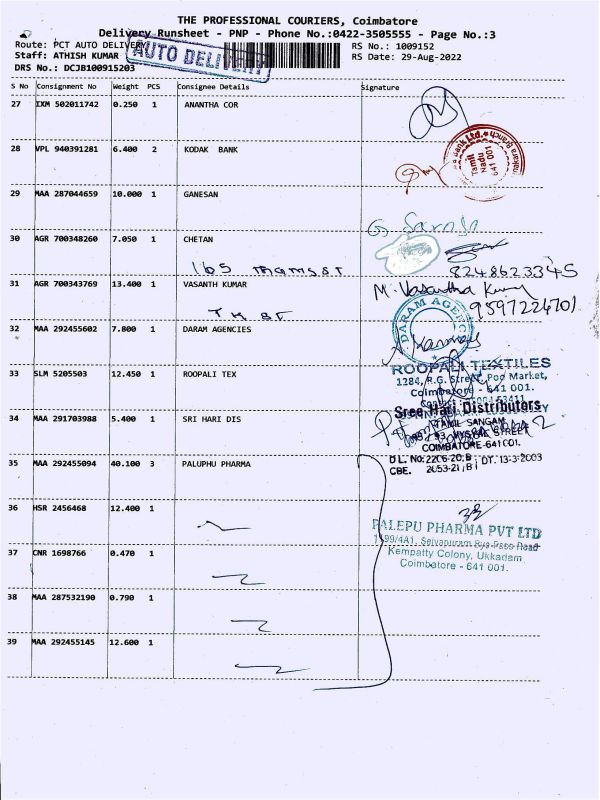 THE PROFESSIONAL COURIERS, Coimbatore
Delivery Runsheet - PNP - Phone No.:0422-3505555 - Page No.:3
Route: PCT AUTO DELIVERY
AUTO DELIVERY
RS No.: 1009152
Staff: ATHISH KUMAR
RS Date: 29-Aug-2022
DRS No.: DCJB100915203
S No Consignment No Weight PCS Consignee Details Signature
27 IXM 502011742 0.250 1 ANANTHA COR
28 VPL 940391281 6.400 2 KODAK BANK
641 001
29 MAA 287044659 10.000 1 GANESAN
30 AGR 700348260 7.050 1 CHETAN
8248623345
31 AGR 700343769 13.400 1 VASANTH KUMAR
M. Vasantha
9597224701
32 MAA 292455602 7.800 1 DARAM AGENCIES
DARAM AGENC
33 SLM 5205503 12.450 1 ROOPALI TEX
ROOPALI TEXTILES
1284, R.G. Street, Poo Market,
Coimbatore - 641 001.
34 MAA 291703988 5.400 1 SRI HARI DIS
Sree Hari Distributors
TAMIL SANGAM
STREET
COIMBATORE-641001.
35 MAA 292455094 40.100 3 PALUPHU PHARMA
D L. No: 2206-20,B ; DT. 13-3-2003
CBE. 2053-21,B
36 HSR 2456468 12.400 1
PALEPU PHARMA PVT LTD
37 CNR 1698766 0.470 1
Kempatty Colony, Ukkadam
Coimbatore - 641 001.
38 MAA 287532190 0.790 1
39 MAA 292455145 12.600 1